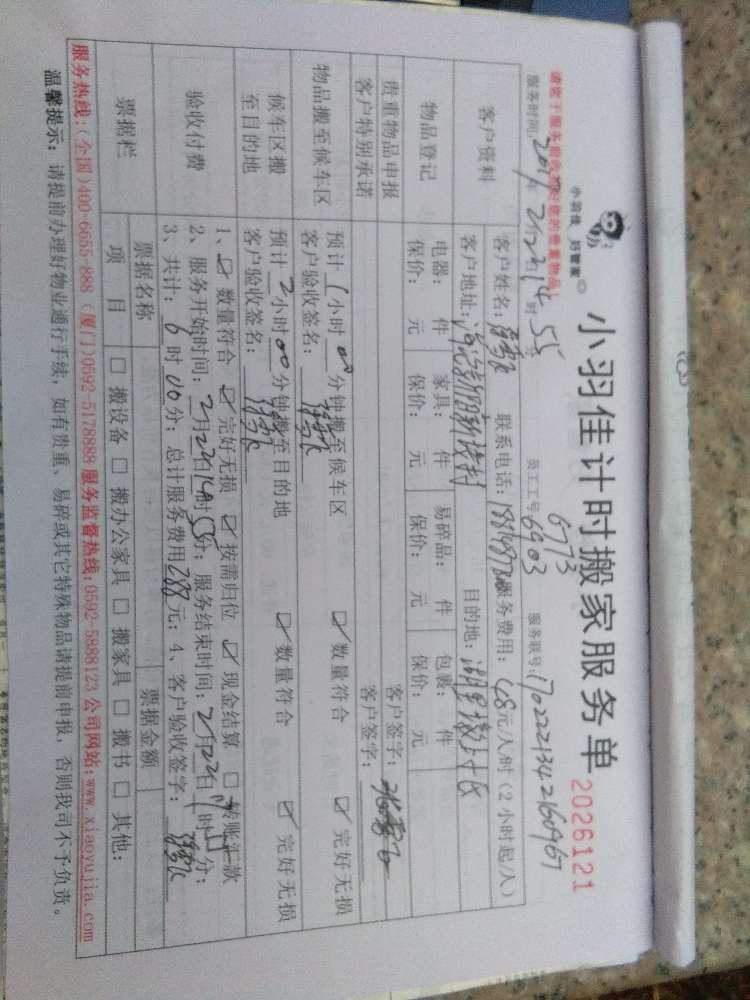 小羽佳计时搬家服务单
2026121
小羽佳 好管家
服务时间: 2017年2月22日14时55分
员工工号: 6773
6903
服务联号: 1702221342166967
客户资料
客户姓名:
联系电话:
服务费用: 48元/人时(2小时起/人)
客户地址:
目的地:
物品登记
电器: 件 家具: 件 易碎品: 件 包裹: 件
保价: 元 保价: 元 保价: 元 保价: 元
贵重物品申报
客户签字:
客户特别承诺
客户签字:
物品搬至候车区
预计1小时00分钟搬至候车区 ☑ 数量符合 ☑ 完好无损
客户验收签名:
候车区搬至目的地
预计2小时00分钟搬至目的地 ☑ 数量符合 ☑ 完好无损
客户验收签名:
验收付费
1、☑ 数量符合 ☑ 完好无损 ☑ 按需归位 ☑ 现金结算 □ 转账汇款
2、服务开始时间: 2月22日14时55分; 服务结束时间: 2月22日17时55分;
3、共计: 6时00分; 总计服务费用288元; 4、客户验收签字:
票据栏
票据名称 票据金额
项目 □ 搬设备 □ 搬办公家具 □ 搬家具 □ 搬书 □ 其他:
服务热线:(全国)400-6655-888 (厦门)0592-5178889 服务监督热线:0592-5888123 公司网站:www.xiaoyujia.com
温馨提示: 请提前办理好物业通行手续, 如有贵重、易碎或其它特殊物品请提前申报, 否则我司不予负责。